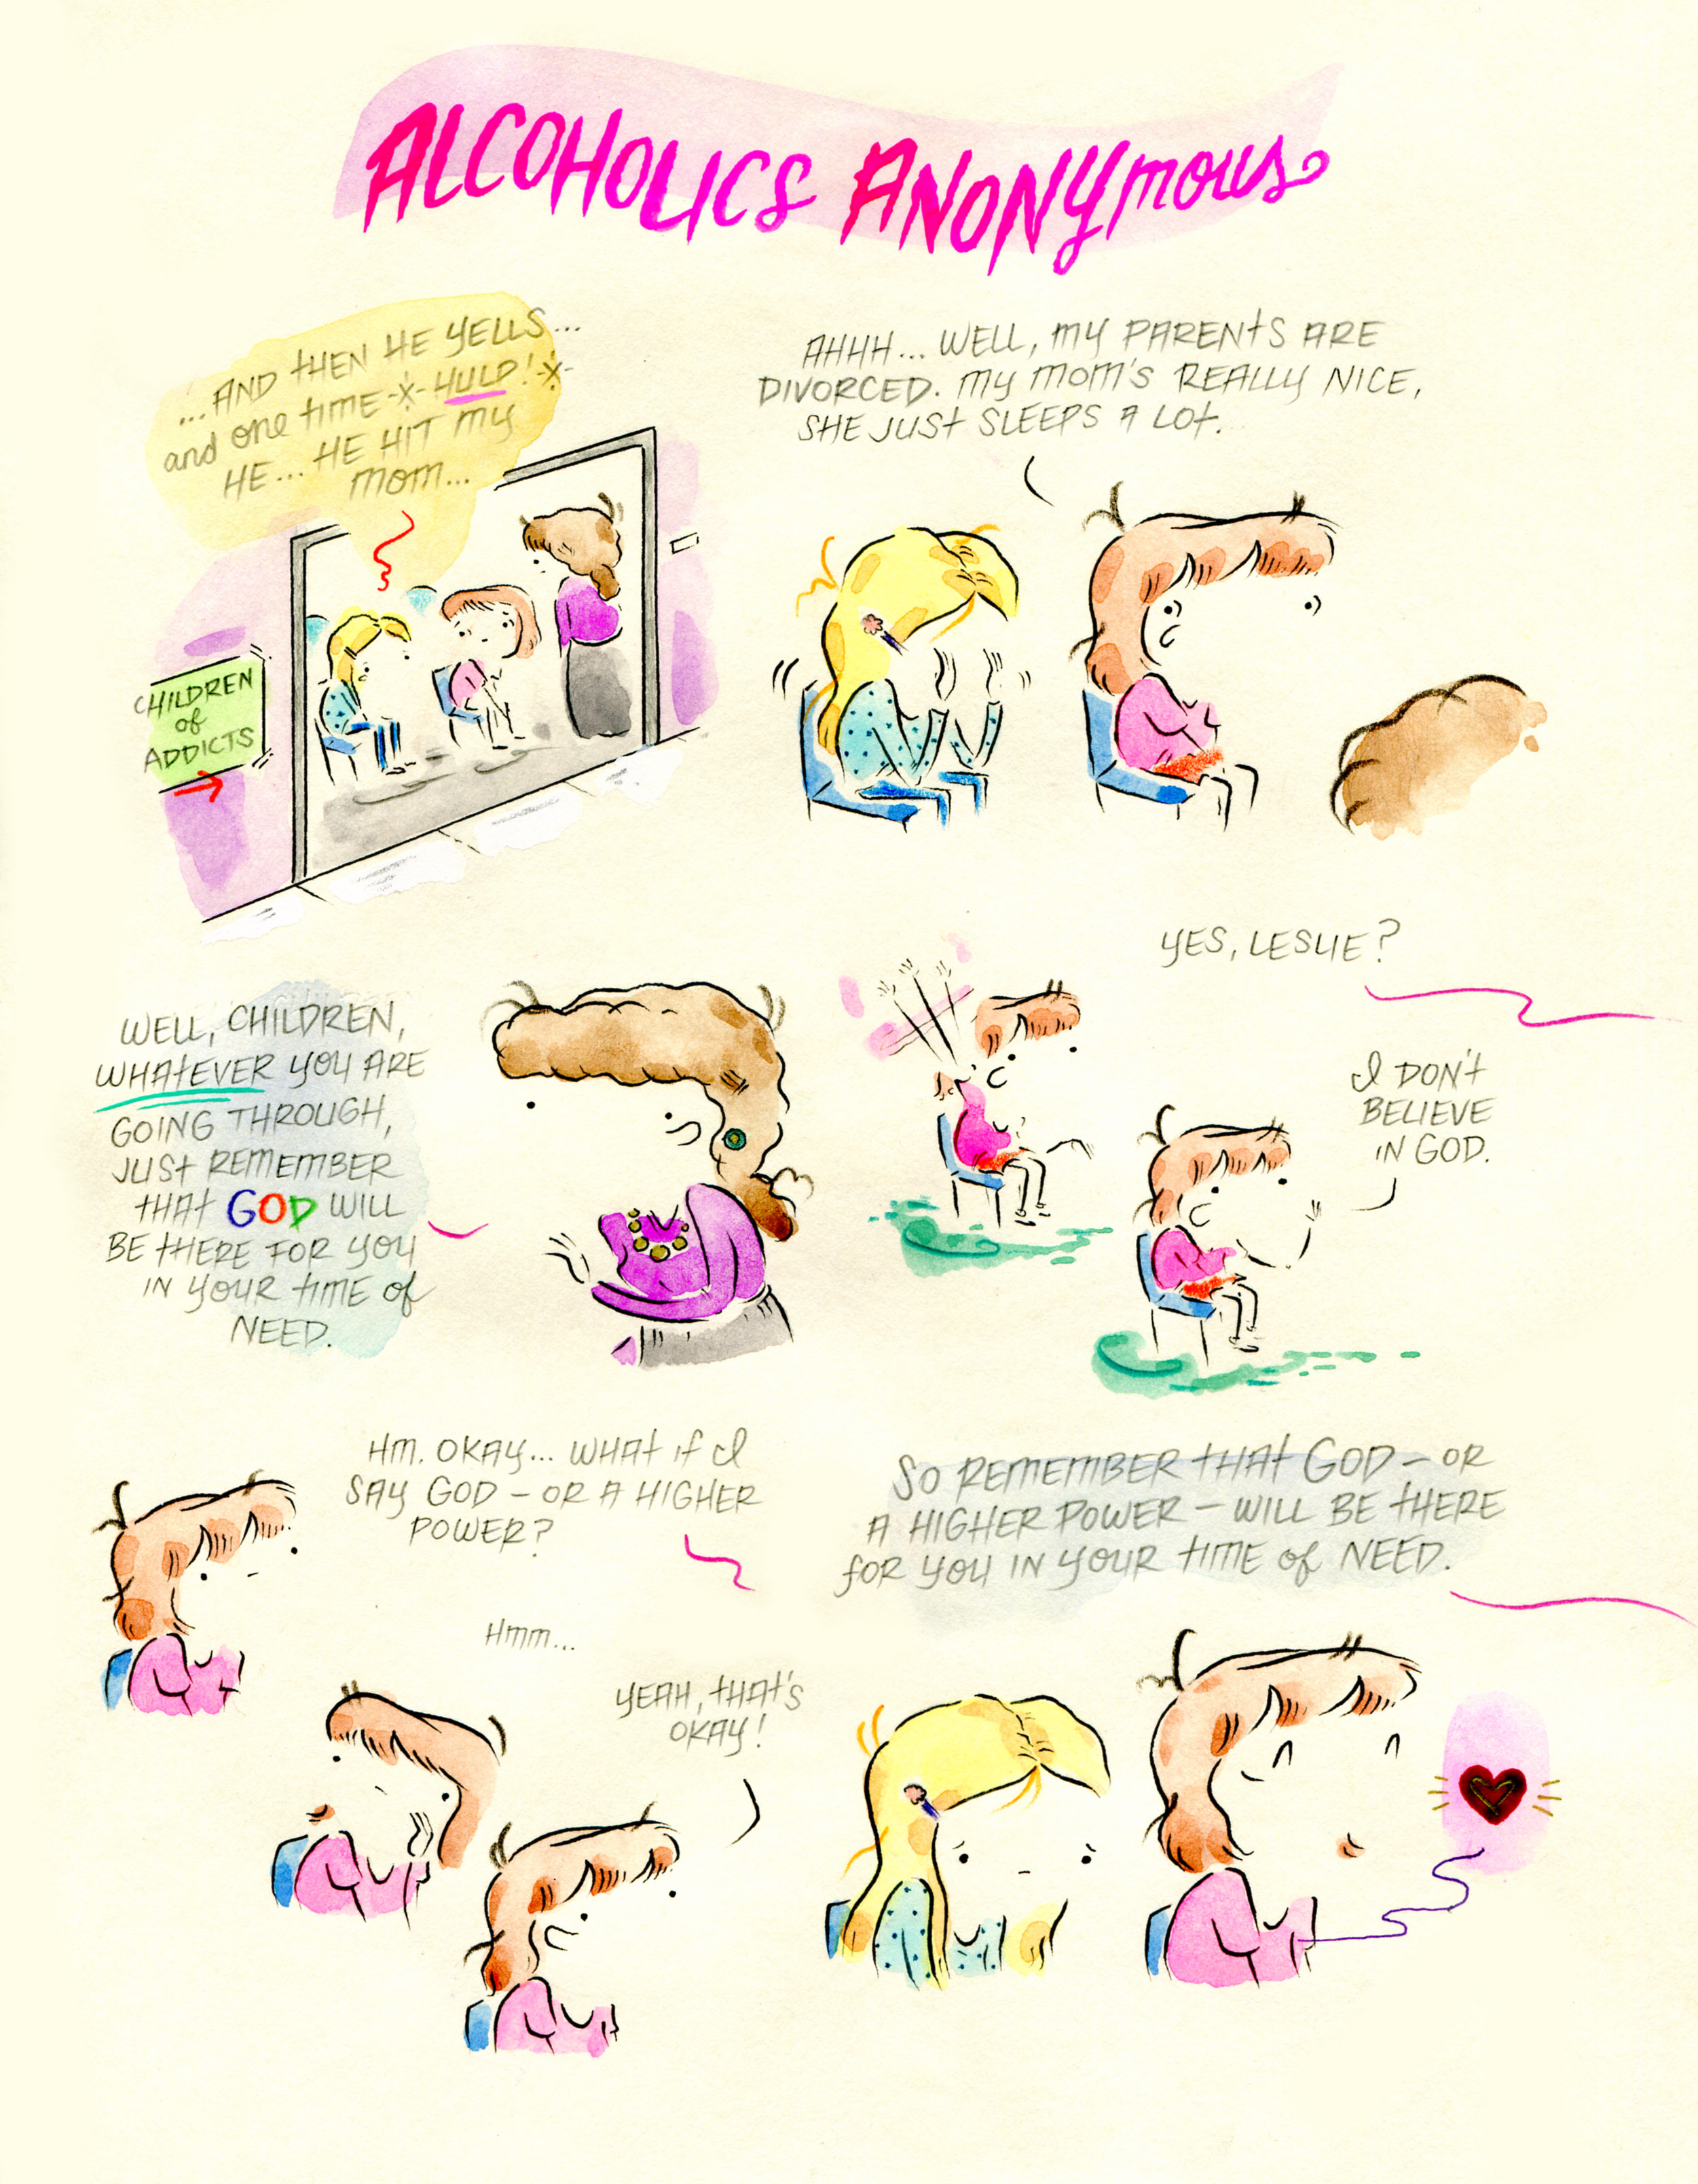 ALCOHOLICS ANONYMOUS
...AND THEN HE YELLS...
and one TIME -X- HULP! -X-
HE... HE HIT MY
MOM...
CHILDREN
of
ADDICTS
AHHH... WELL, MY PARENTS ARE
DIVORCED. MY MOM'S REALLY NICE,
SHE JUST SLEEPS A LOT.
WELL, CHILDREN,
WHATEVER YOU ARE
GOING THROUGH,
JUST REMEMBER
THAT GOD WILL
BE THERE FOR YOU
IN YOUR TIME of
NEED.
YES, LESLIE?
I DON'T
BELIEVE
IN GOD.
HM. OKAY... WHAT if I
SAY GOD - OR A HIGHER
POWER?
Hmm...
YEAH, THAT'S
OKAY!
SO REMEMBER THAT GOD - OR
A HIGHER POWER - WILL BE THERE
FOR YOU IN YOUR TIME of NEED.